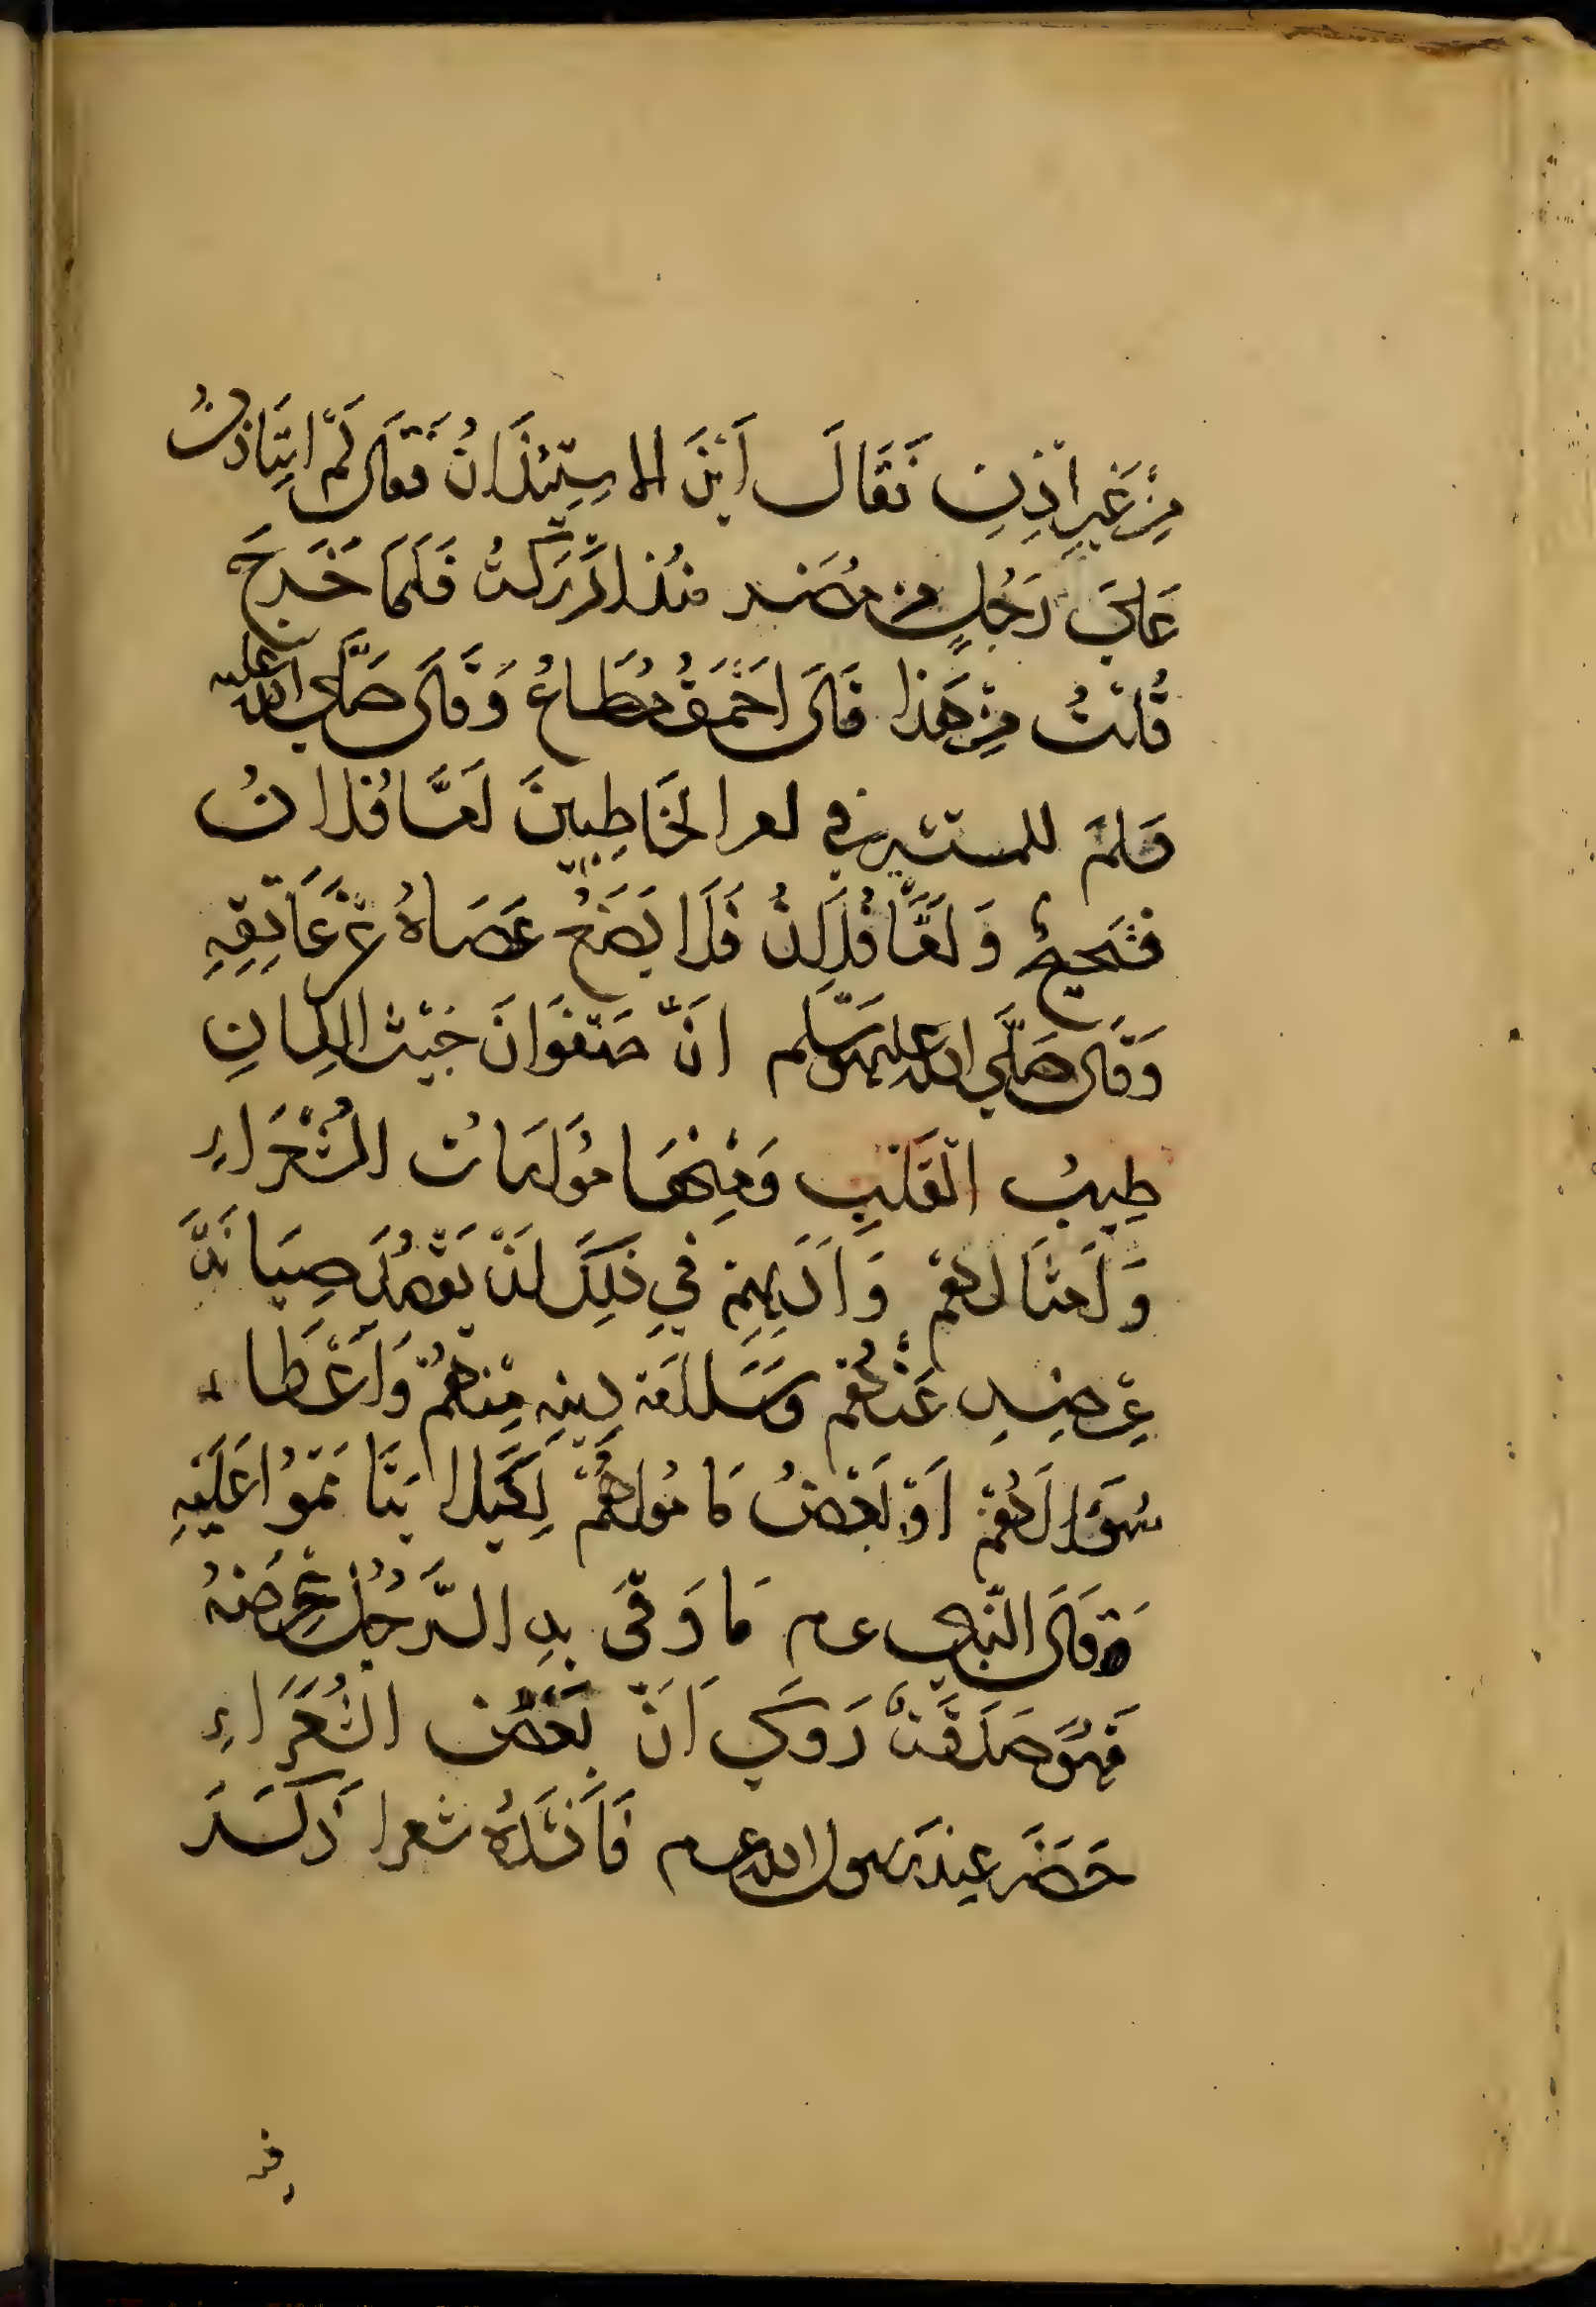 مِنْ غَيرِ اِذْنٍ فَقَالَ اَيْنَ الاسِتِيْذَانُ فَقَالَ لَمْ اَسْتَاذِنْ
عَلىَ رَجُلٍ مِن مُضَر مُنْذ اَدْرَكْتُ فَلَمَا خَرَجَ
قُلْتُ مَنْ هَذا قَالَ اَحْمَقُ مُطَاعٌ وَقَالَ صَلَّى اللّٰه عليه
وسلم للمستشير في احد الخَاطِبِينَ اَمَّا فُلانُ
فشحيحٌ وَاَمَّا فُلَانٌ فَلَا يَضَعُ عَصَاهُ عَنْ عَاتِقِهِ
وَقَالَ صَلَّي اللّٰه عليه وسَلم اِنَّ صَفْوَانَ خَبِيْث اللِسَانِ
طيبُ القَلْبِ وَمِنْهَا مُوَاسَاتُ الشُعَرَاءِ
وَاَمثَالهُم وَاَدَبِهِمْ فِي ذَلِكَ اَنْ يَقْصُدَ صِيَانَةَ
عِرْضِهِ عَنْهُم وَسَلَامَة دِينِهِ مِنْهُمْ وَاَعْطَاء
سُوَالَهُمْ اَوْ بَعْضُ مَامُولهُمْ لِكَيلا يَنَامَوُا عَلَيْهِ
وَقَالَ النَّبي عم مَا وَقَى بِهِ الرَّجُل عِرْضَهُ
فَهُوَ صَدَقَةٌ رَوَي اَنَّ بَعْضَ الشُعَرَاءِ
حَضَرَ عِندَ رَسول اللّٰه عم فَاَنْشَدَهُ شعرا